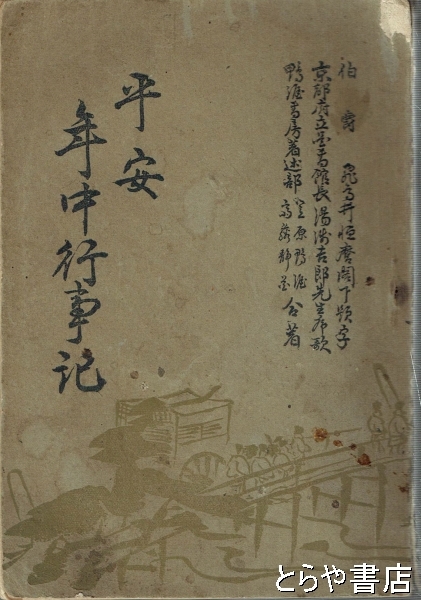 伯爵 飛鳥井恒麿閣下題字
京都府立図書館長湯浅吉郎先生序歌
鴨涯書房著述部 笠原鴨涯
合著
平安
年中行事記
とらや書店